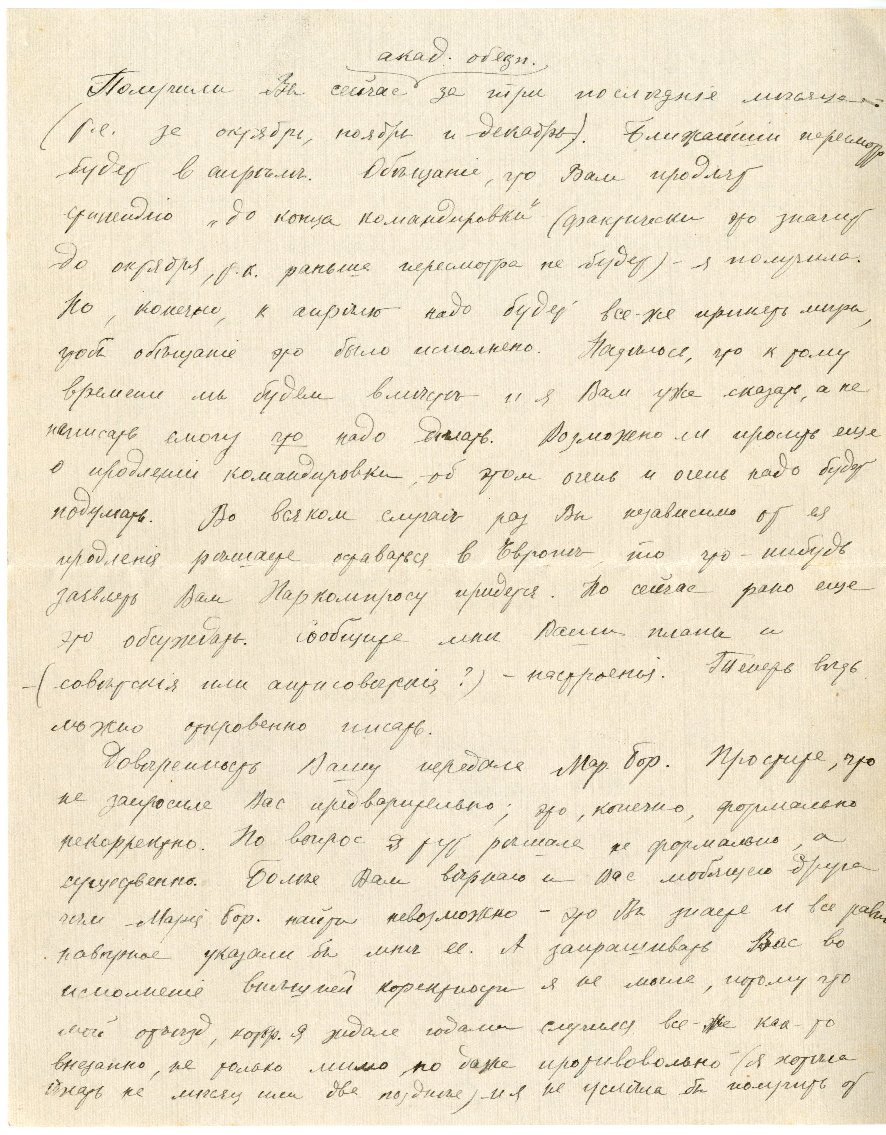 акад. обезп.
Получили Вы сейчас за три последніе мѣсяца
(т.е. за октябрь, ноябрь и декабрь). Ближайшій пересмотр
будет в апрѣлѣ. Обѣщаніе, что Вам продлят
стипендію „до конца командировки“ (фактически это значит
до октября, т.к. раньше пересмотра не будет) – я получила.
Но, конечно, к апрѣлю надо будет все-же принять мѣры,
чтобы обѣщаніе это было исполнено. Надѣюсь, что к тому
времени мы будем вмѣстѣ и я Вам уже сказать, а не
написать смогу что надо дѣлать. Возможно ли просить еще
о продленіи командировки, – об этом очень и очень надо будет
подумать. Во всяком случаѣ раз Вы независимо от ея
продленія рѣшаете оставаться в Европѣ, то что-нибудь
заявлять Вам Наркомпросу придется. Но сейчас рано еще
это обсуждать. Сообщите мнѣ Ваши планы и
– (совѣтскія или антисовѣтскія?) – настроенія. Теперь вѣдь
можно откровенно писать.
Довѣренность Вашу передала Мар. Бор. Простите, что
не запросила Вас предварительно; это, конечно, формально
некорректно. Но вопрос я тут рѣшала не формально, а
существенно. Болѣе Вам вѣрнаго и Вас любящего друга
чѣм Марія Бор. найти невозможно – это Вы знаете и все равно
навѣрное указали бы мнѣ ее. А запрашивать Вас во
исполненіе внѣшней коректности я не могла, потому что
мой отъѣзд, котор. я ждала годами случился все-же как-то
внезапно, не только мимо, но даже противовольно – (я хотѣла
ѣхать на мѣсяц или два позднѣе) – и я не успѣла бы получить от